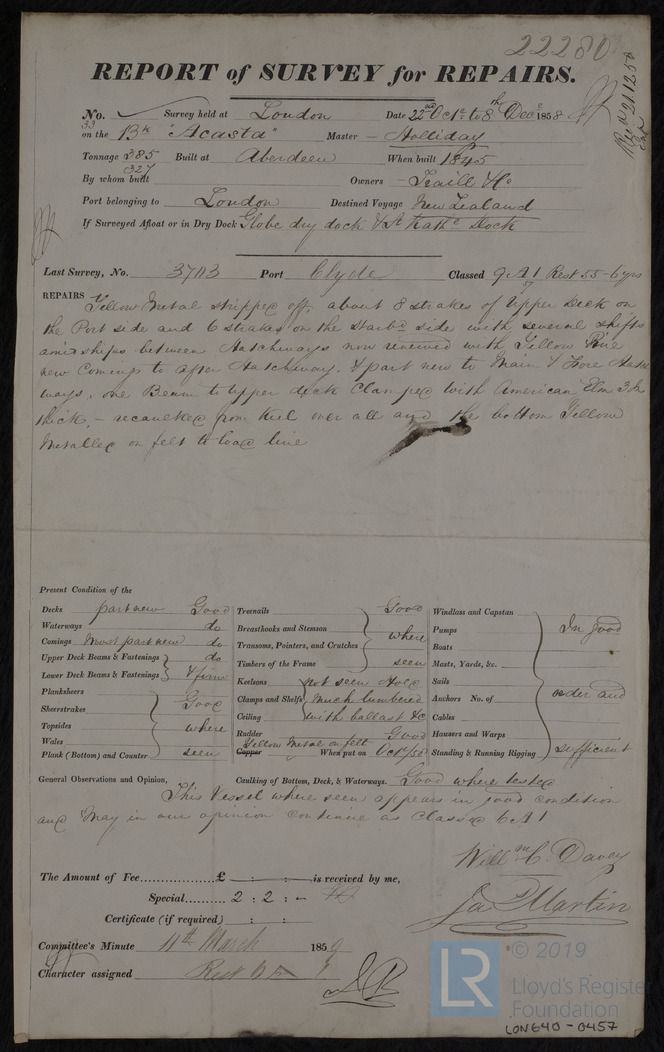 22280
REPORT of SURVEY for REPAIRS.
No. Survey held at London Date 22nd Octr to 8th Decr 1858
33
on the Bk "Acasta" Master Holliday
Tonnage 385 Built at Aberdeen When built 1845
327
By whom built Owners Traill & Co
Port belonging to London Destined Voyage New Zealand
If Surveyed Afloat or in Dry Dock Globe dry dock & St Kathe Dock
Last Survey, No. 3703 Port Clyde Classed 9 A1 Rest 55-6 yrs
REPAIRS Yellow Metal stripped off, about 8 strakes of Upper Deck on
the Port side and 6 strakes on the Starbd side with several shifts
amidships between Hatchways now renewed with Yellow Pine
new Comings to after Hatchway, & part new to Main & Fore Hatch
ways, one Beam to upper deck clamped with American Elm 3 In
thick, - recaulked from keel over all and the bottom Yellow
Metalled on felt to load line
Present Condition of the
Decks part new Good
Waterways do
Comings Most part new do
Upper Deck Beams & Fastenings do
Lower Deck Beams & Fastenings & firm
Planksheers
Sheerstrakes Good
Topsides where
Wales
Plank (Bottom) and Counter seen
Treenails Good
Breasthooks and Stemson
Transoms, Pointers, and Crutches where
Timbers of the Frame seen
Keelsons not seen Hold
Clamps and Shelfs much lumbered
Ceiling with ballast &c
Rudder Good
Yellow Metal on felt
Copper When put on Octr/58
Windlass and Capstan
Pumps In good
Boats
Masts, Yards, &c.
Sails
Anchors No. of order and
Cables
Hawsers and Warps
Standing & Running Rigging sufficient
General Observations and Opinion, Caulking of Bottom, Deck, & Waterways. Good where tested
This Vessel where seen appears in good condition
and May in our opinion continue as classed 6 A1
Willm C. Davey
Jas Martin
The Amount of Fee £ : : is received by me,
Special 2 : 2 : -
Certificate (if required) : :
Committee's Minute 11th March 1859
Character assigned Rest 6
© 2019
LR
Lloyd's Register
Foundation
LON640-0457